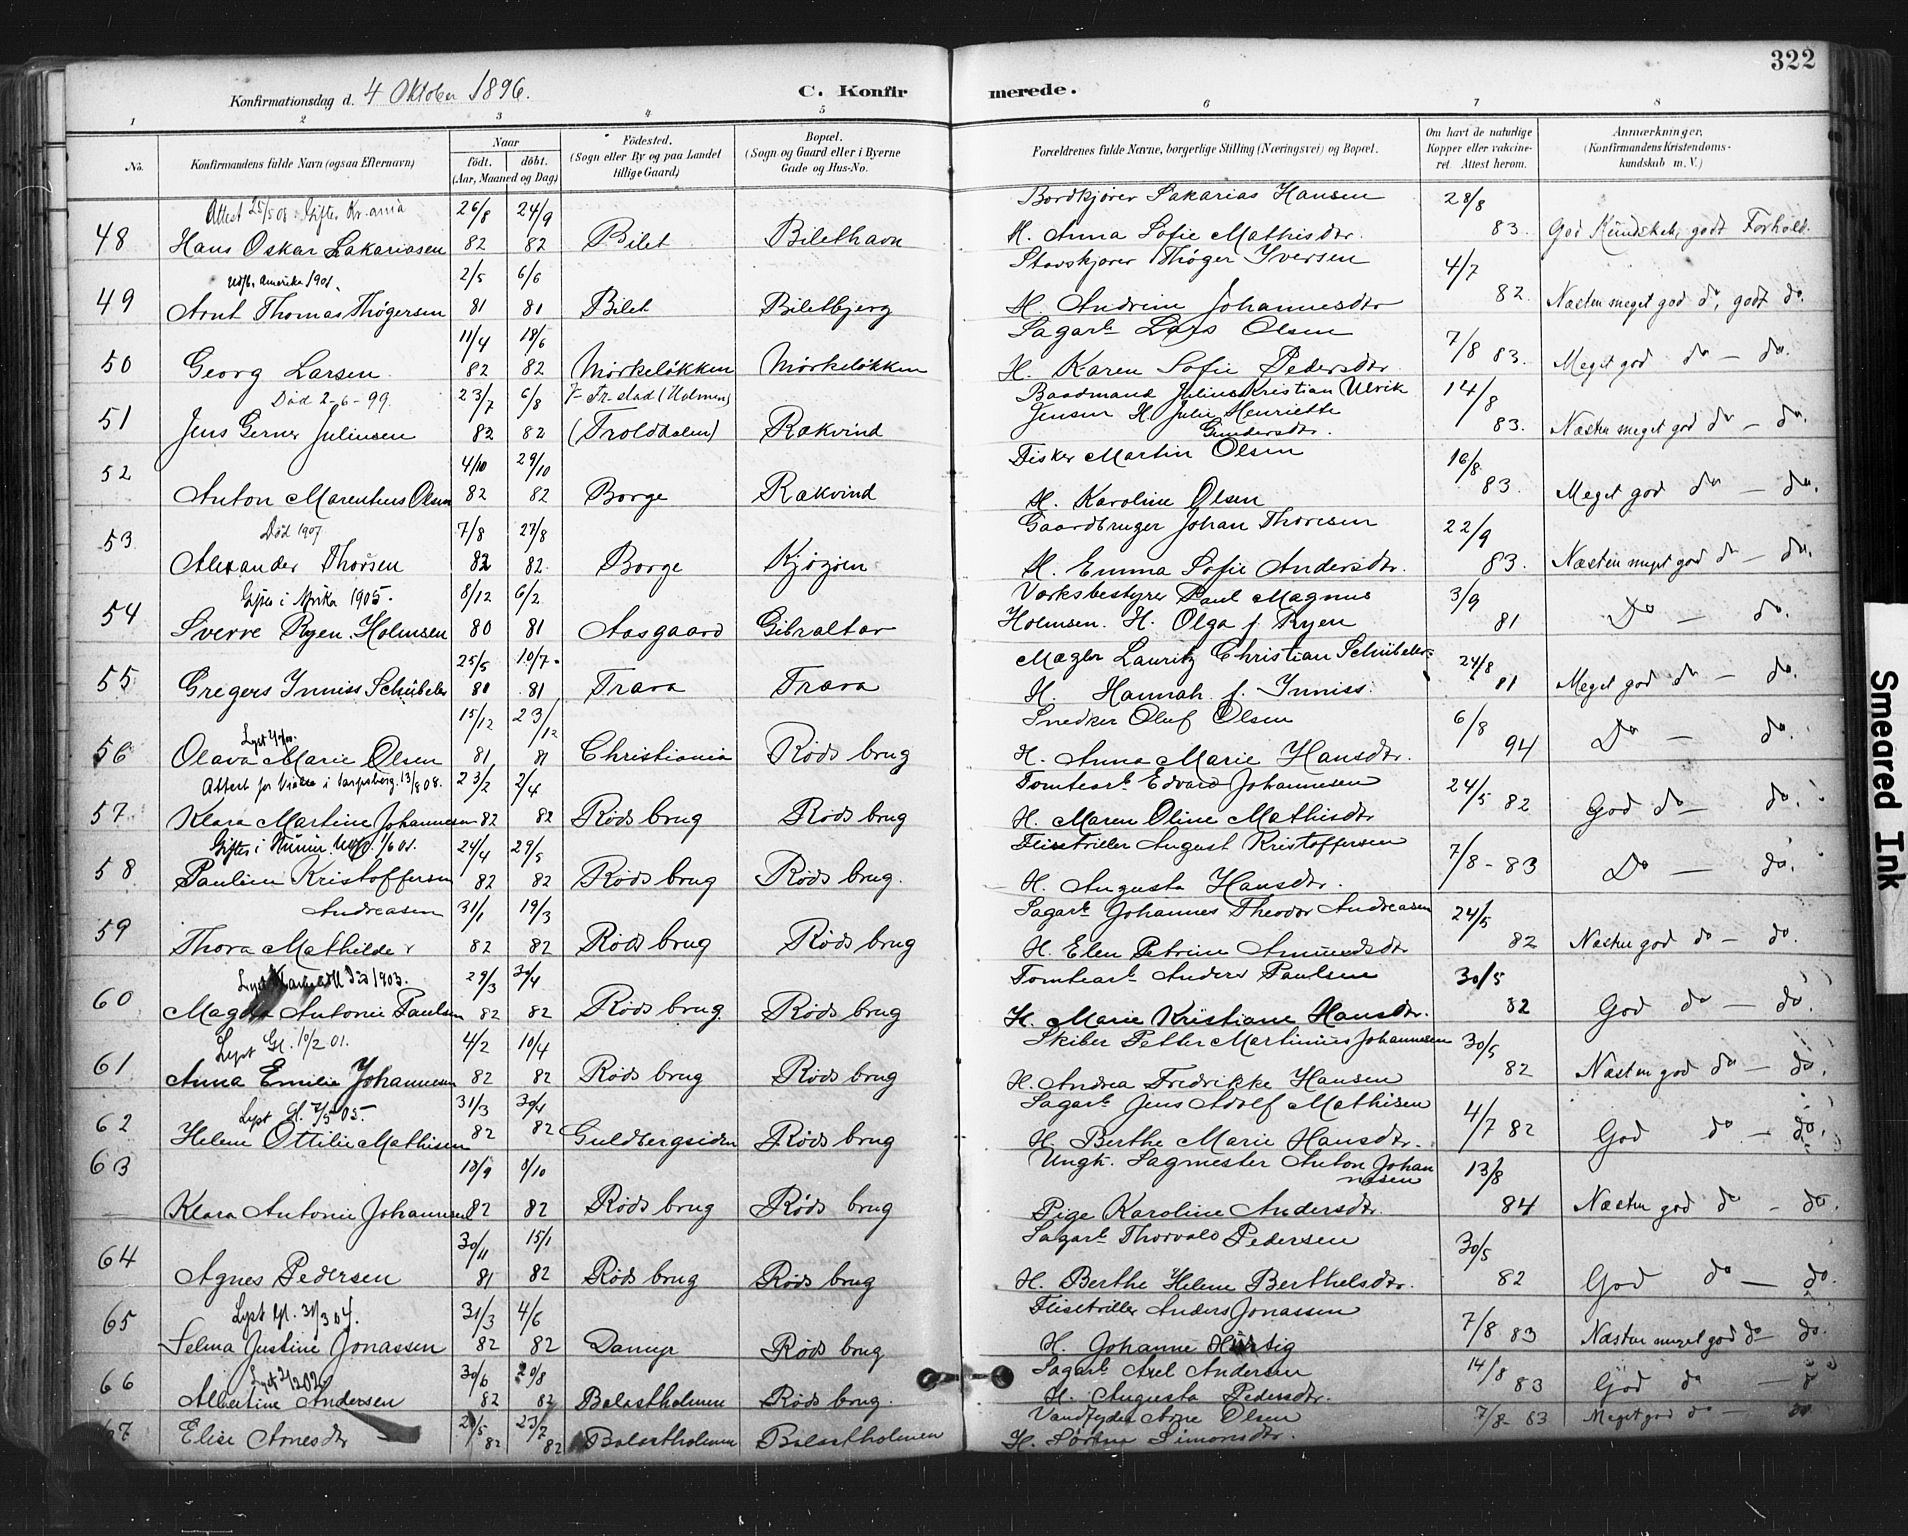 322
Konfirmationsdag d. 4 Oktober 1896.
C. Konfirmerede.
1 2 3 4 5 6 7 8
No. Konfirmandens fulde Navn (ogsaa Efternavn) Naar født. døbt. (Aar, Maaned og Dag) Fødested. (Sogn eller By og paa Landet tillige Gaard) Bopæl. (Sogn og Gaard eller i Byerne Gade og Hus-No. Forældrenes fulde Navne, borgerlige Stilling (Næringsvei) og Bopæl. Om havt de naturlige Kopper eller vakcineret. Attest herom. Anmærkninger, (Konfirmandens Kristendomskundskab m. V.)
Attest 25/5 08 Gifter Kr.ania 26/8 24/9 Bordkjører Sakarias Hansen 28/8
48 Hans Oskar Zakariasen 82 82 Bilet Bilethavn H. Anna Sofie Mathisdtr. 83. God Kundskab, godt Forhold.
Udfl. Amerika 1901. 2/5 6/6 Stavskjører Thøger Iversen 4/7
49 Arnt Thomas Thøgersen 81 81 Bilet Biletbjerg H. Andrine Johannesdtr 82. Næsten meget god do, godt do.
11/4 18/6 Sagarb. Lars Olsen 7/8 83.
50 Georg Larsen 82 82 Mørkeløkken Mørkeløkken H. Karen Sofie Pedersdtr Meget god do — do.
Død 2-6-99. 23/7 6/8 Fr.stad (Holmen) Baadmand Julius Kristian Ulrik 14/8
51 Jens Gerner Juliusen 82 82 (Trolddalen) Rakvind Jensen H. Julie Henriette Gundersdtr. 83. Næsten meget god do — do.
4/10 29/10 Fisker Martin Olsen 16/8
52 Anton Marentius Olsen 82 82 Borge Rakvind H. Karoline Olsen 83. Meget god do — do.
Død 1907 7/8 27/8 Gaardbruger Johan Thoresen 22/9
53 Alexander Thorsen 82 82. Borge Kjøzøen H. Emma Sofie Andersdtr. 83. Næsten meget god do — do.
Giftes i Afrika 1905. 8/12 6/2 Værksbestyrer Paul Magnus 3/9
54 Sverre Ryen Holmsen 80 81 Aasgaard Gibraltar Holmsen. H. Olga f. Ryen 81 Do — do.
25/5 10/7 Mægler Lauritz Christian Schübeler 24/8
55 Gregers Inniss Schübeler 80 81 Trara Trara H. Hannah f. Inniss. 81 Meget god do — do.
15/12 23/12 Snedker Oluf Olsen 6/8
56 Olava Marie Olsen 81 81 Christiania Røds brug H. Anna Marie Hansdtr. 94 Do — do.
Attest for Vielse i Sarpsborg. 13/8 08. 23/2 2/4 Tomtearb. Edvard Johannesen 24/5 82
57 Klara Martine Johannesen 82 82 Røds brug Røds brug H. Maren Oline Mathisdtr God do — do.
24/4 29/5 August Kristoffersen 7/8 - 83
58 Pauline Kristoffersen 82 82 Røds brug Røds brug. H. Augusta Hansdtr. Do — do.
Andreasen 31/1 19/3 Sagarb. Johannes Theodor Andreasen 24/5
59 Thora Mathilde 82 82 Røds brug Røds brug H. Elen Petrine Amundsdtr 82 Næsten god do — do.
29/3 30/4 Tomtearb. Anders Paulsen 30/5
60 Magda Antonie Paulsen 82 82 Røds brug. Røds brug H. Marie Kristiane Hansdtr. 82 God do — do.
Lyst Gl. 10/2 01. 4/2 10/4 Skiber Petter Martinius Johannesen 30/5
61 Anna Emilie Johannesen 82 82 Røds brug Røds brug H. Andrea Fredrikke Hansen 82 Næsten god do — do.
Lyst Gl. 7/5 05 31/3 30/4 Sagarb. Jens Adolf Mathisen 4/7 82
62 Helene Ottilie Mathisen 82 82 Guldbergsiden Røds brug H. Berthe Marie Hansdtr. God do — do.
63 18/9 8/10 Ungk. Sagmester Anton Johannesen 13/8
Klara Antonie Johannesen 82 82 Røds brug Røds brug Pige Karoline Andersdtr. 84 Næsten god do — do.
30/11 15/1 Sagarb. Thorvald Pedersen 30/5
64 Agnes Pedersen 81 82 Røds brug Røds brug H. Berthe Helene Berthelsdtr. 82 God do — do.
Lyst Gl. 31/3 04. 31/3 4/6 Anders Jonassen 7/8 83
65 Selma Justine Jonassen 82 82 Damyr Røds brug H. Johanne Næsten meget god do — do.
30/6 20/8 Sagarb. Axel Andersen 14/8
66 Albertine Andersen 82 82 Balastholmen Røds brug. H. Augusta Pedersdtr. 83 God do —
23/7 Arne Olsen 7/8 83
67 Elise Arnesdtr 82 82 Balastholmen Balastholmen H. Simonsdtr. Meget god do — do
Smeared Ink